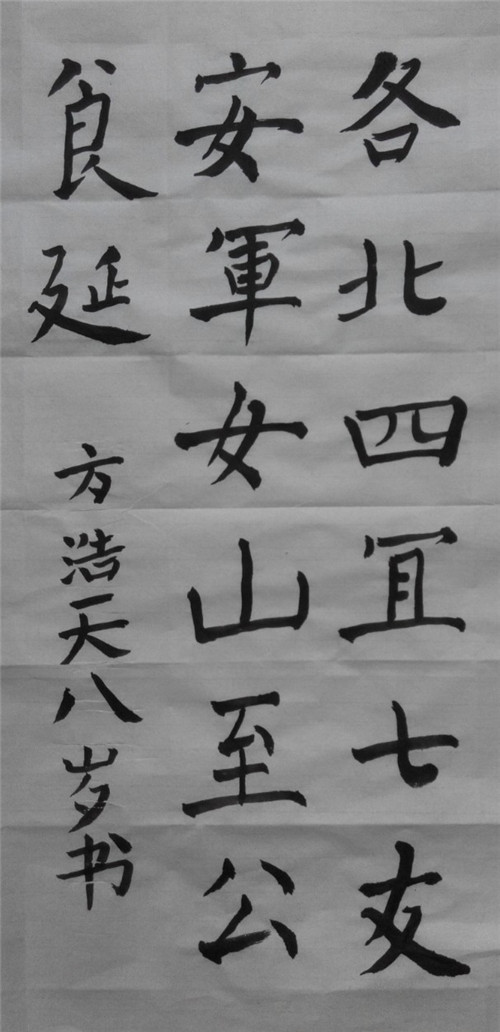 各北四冝七友
安軍女山至公
食延
方浩天八岁书